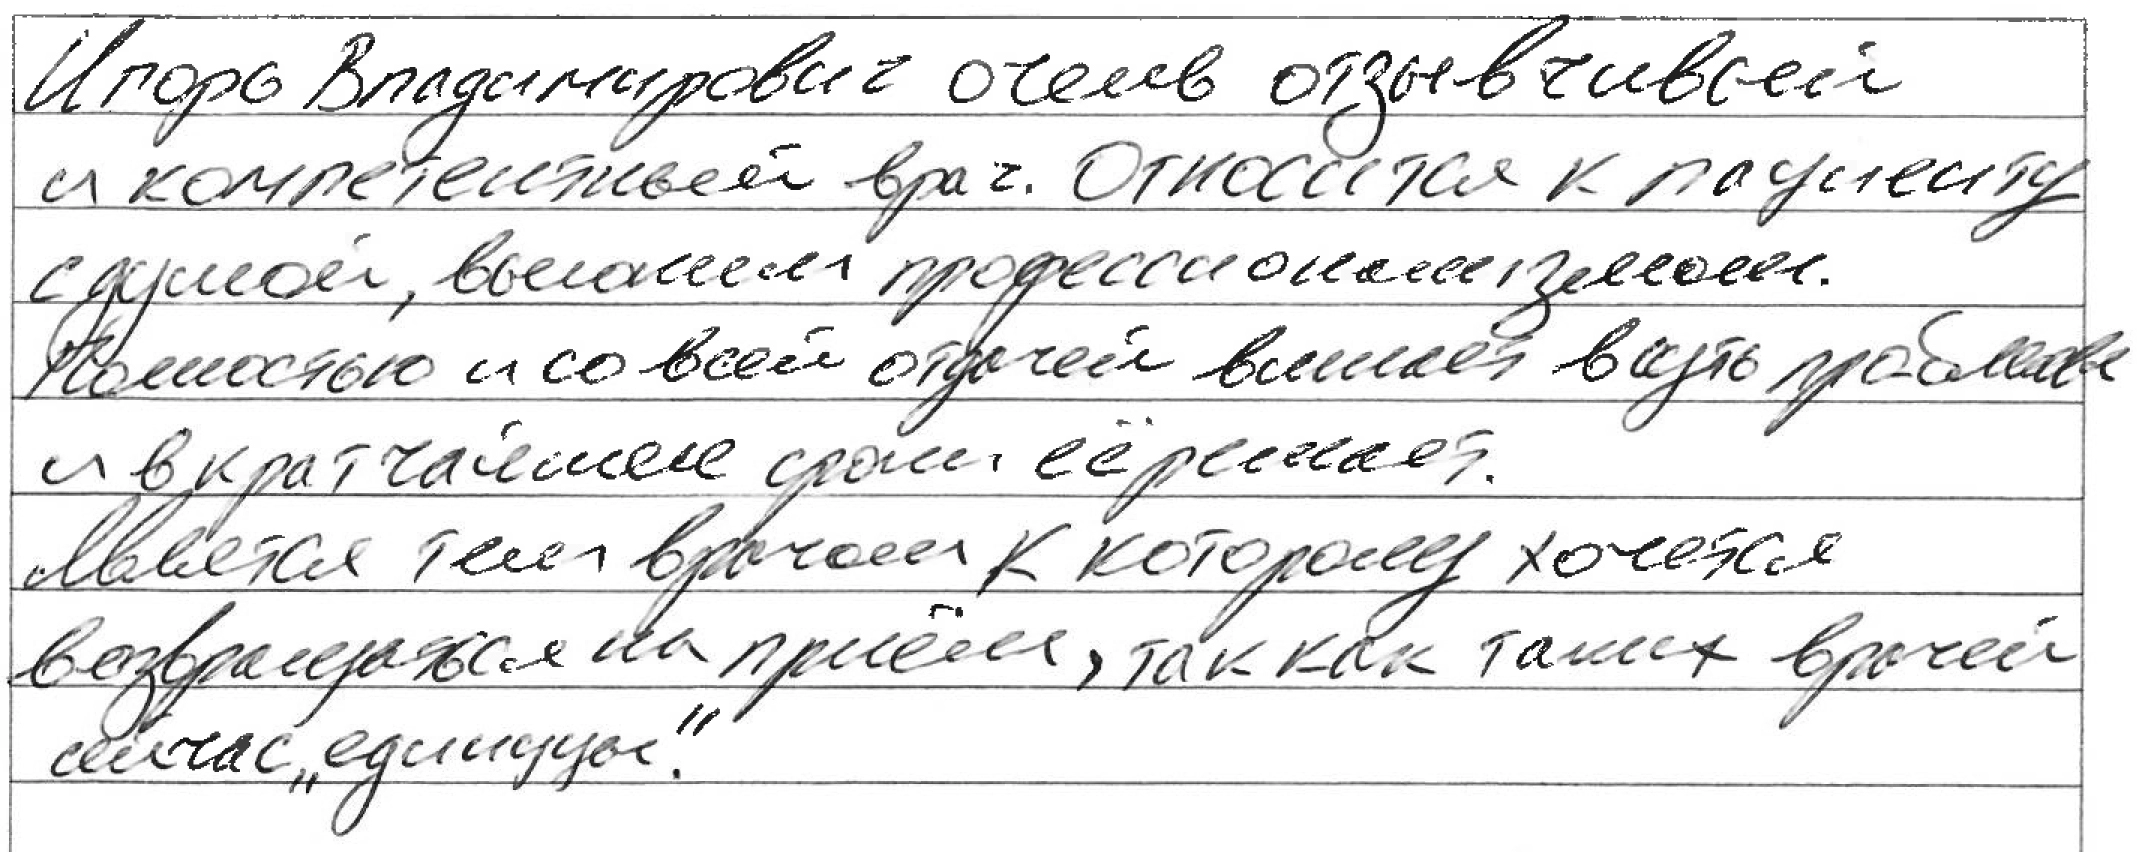 Игорь Владимирович очень отзывчивый
и компетентный врач. Относится к пациенту
с душой, высоким профессионализмом.
Полностью и со всей отдачей вникает в суть проблемы
и в кратчайшие сроки её решает.
Является тем врачом к которому хочется
возвращаться на приём, так как таких врачей
сейчас „единицы."